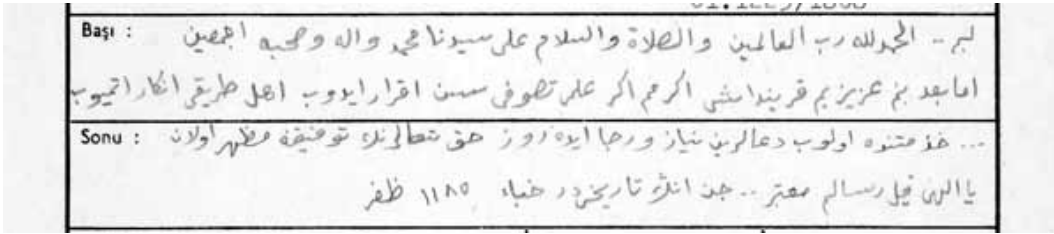 Başı : لبر .. الحمد لله رب العالمين والصلاة والسلام على سيدنا محمد واله وصحبه اجمعين
اما بعد بنم عزيزيم قرينداشى اكرم اكر علم تصوفى سن اقرار ايدوب اهل طريقى انكار اتميوب
Sonu : ... خدمتنده اولوب دعالرين نياز ورجا ايده روز حق تعالى توفيقه مظهر اولان
يا الهى قيل رسالم معتبر .. جن انك تاريخيدر ١١٨٥ ظفر